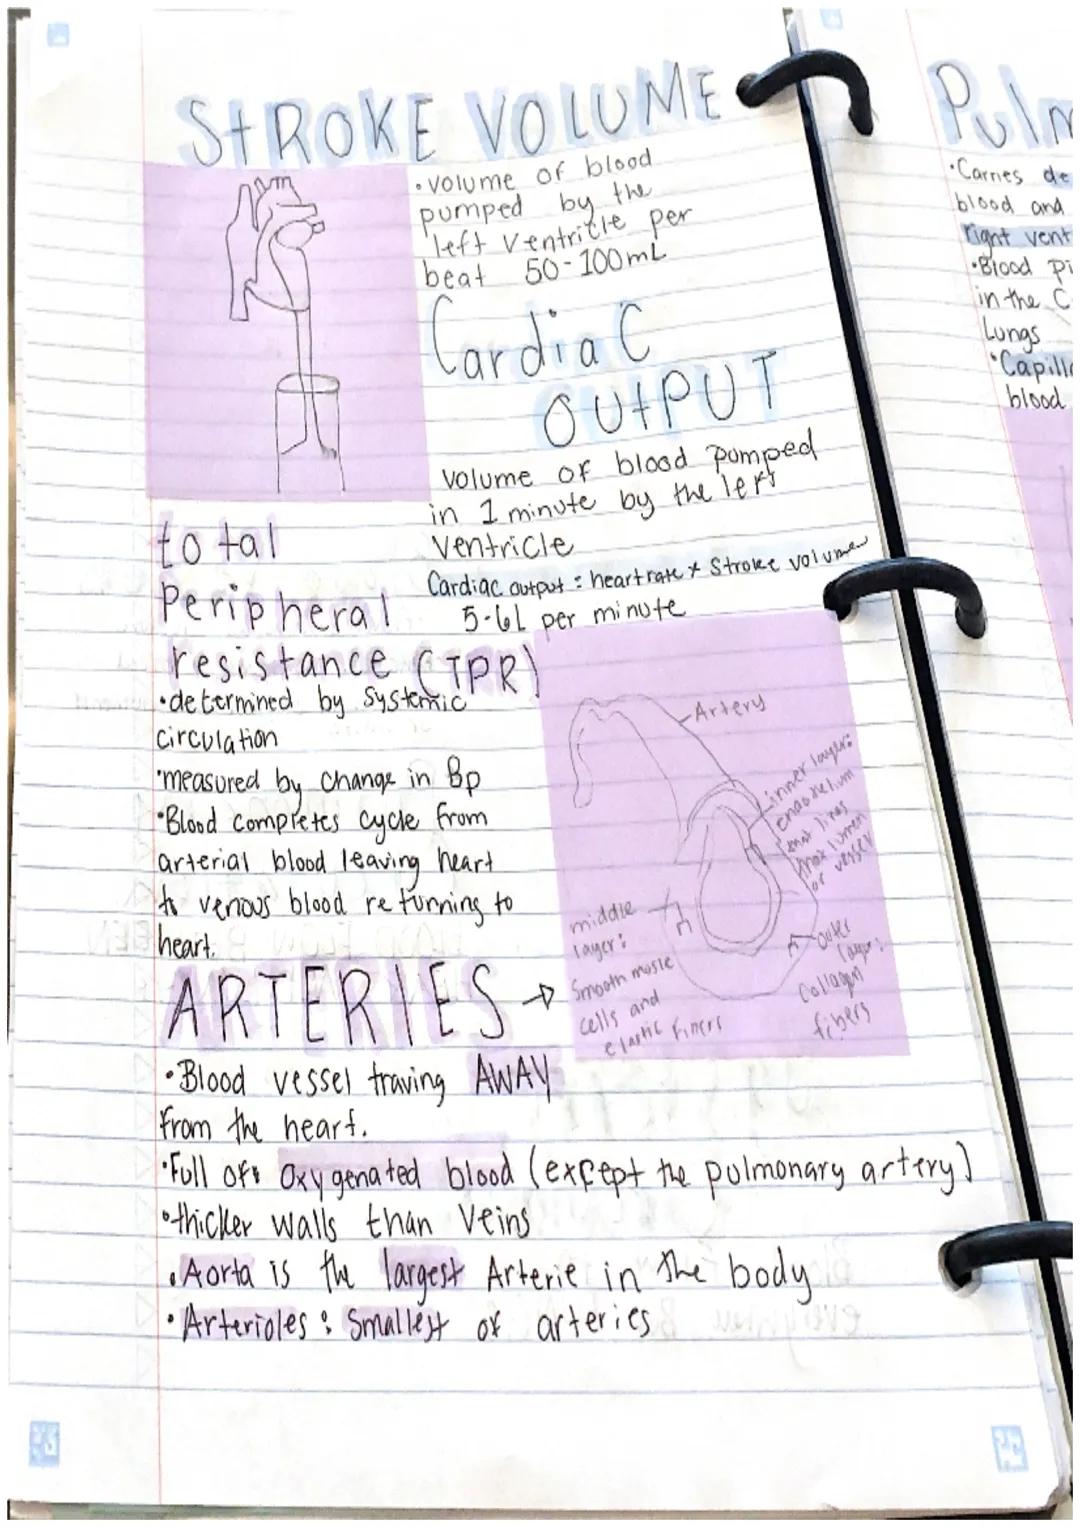 StROKE VOLUME
• volume of blood
pumped by the
left ventricle per
beat 50-100mL
Cardiac
OUtPUT
volume of blood pumped
in 1 minute by the left
ventricle
Cardiac output = heart rate x Stroke volume
5-6L per minute
total
Peripheral
resistance (TPR)
• determined by Systemic
circulation
• measured by change in Bp
• Blood completes cycle from
arterial blood leaving heart
to venous blood returning to
heart.
Artery
inner layer:
endothelium
that lines
the lumen
of vessel
middle
layer:
Smooth muscle
cells and
elastic fibers
outer
layer:
Collagen
fibers
ARTERIES →
• Blood vessel traving AWAY
from the heart.
• Full of: Oxygenated blood (except the pulmonary artery)
• thicker walls than Veins
• Aorta is the largest Arterie in the body
• Arterioles: Smallest of arteries
Pulm
• Carries de
blood and
right vent
• Blood pi
in the C
Lungs
• Capill
blood